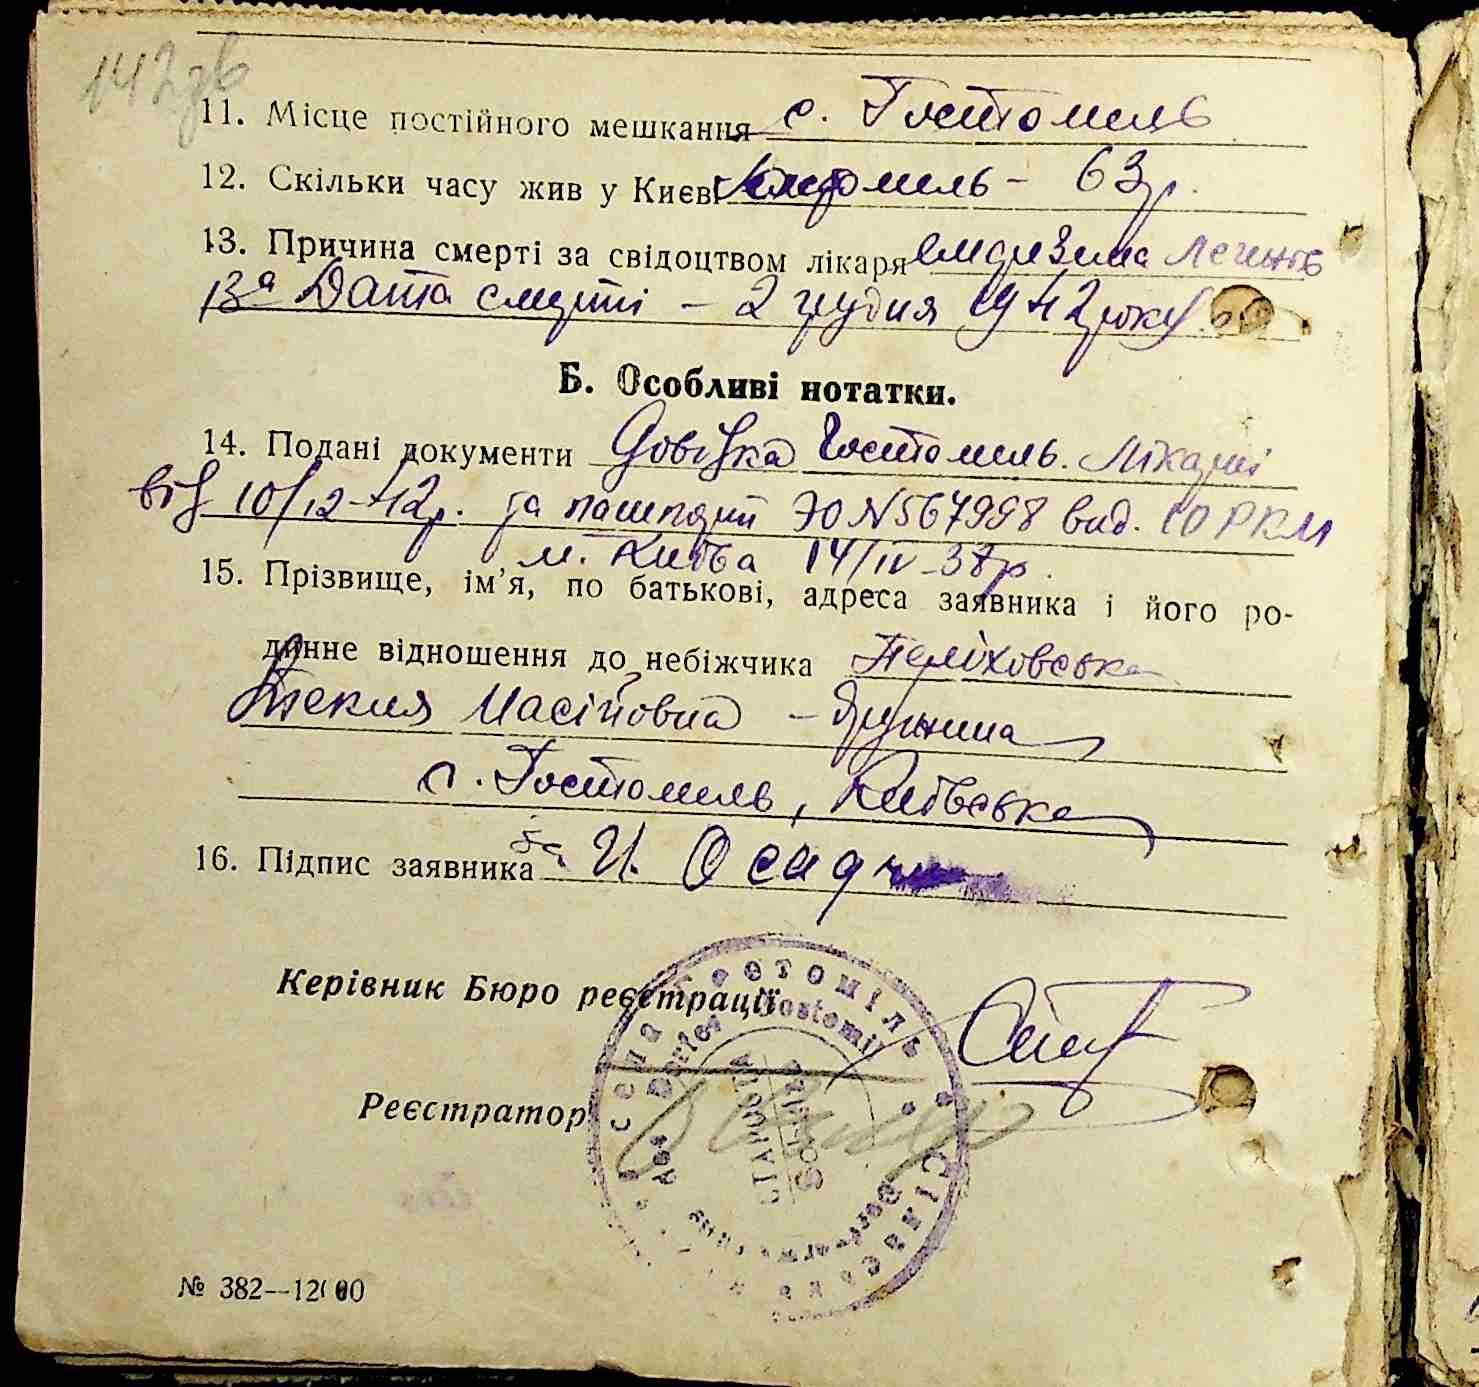 142зв
11. Місце постійного мешкання с. Гостомель
12. Скільки часу жив у Києві Гостомель – 63 р.
13. Причина смерті за свідоцтвом лікаря емфизима легенів
13а Дата смерті – 2 грудня 1942 року
Б. Особливі нотатки.
14. Подані документи Довідка Гостомель. Лікарні
від 10/12-42р. та пашпорт ЭЮ N 567998 вид. 10 РКМ
м. Київа 14/IV-37р.
15. Прізвище, ім'я, по батькові, адреса заявника і його ро-
динне відношення до небіжчика Пеліховська
Текля Масіївовна – дружина
с. Гостомель, Київська
16. Підпис заявника за И. Осадч
Керівник Бюро реєстрації
Реєстратор
Гостоміль
Gostomil
Староста
№ 382--12000